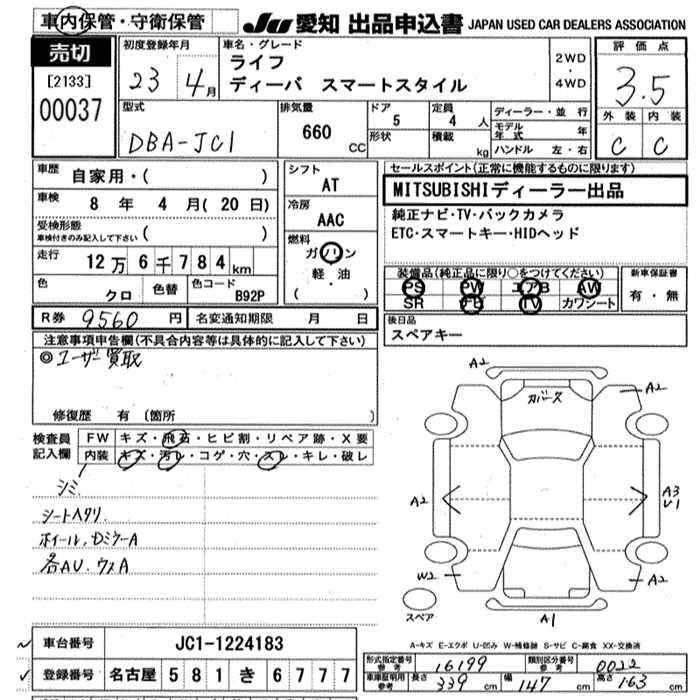 車内保管・守衛保管
JU 愛知 出品申込書 JAPAN USED CAR DEALERS ASSOCIATION
売切
[2133]
00037
初度登録年月
23 4月
車名・グレード
ライフ
ディーバ スマートスタイル
2WD
・
4WD
評価点
3.5
外装 内装
C C
型式
DBA-JC1
排気量
660 CC
ドア
5
形状
定員
4 人
積載
kg
ディーラー・並行
モデル年式 年
ハンドル 左・右
車歴
自家用・( )
車検
8 年 4 月(20 日)
受検形態
車検付きのみ記入して下さい ( )
走行
12万6千784km
色
クロ
色替
色コード
B92P
シフト
AT
冷房
AAC
燃料
ガソリン
軽・油
( )
セールスポイント(正常に機能するものに限ります)
MITSUBISHIディーラー出品
純正ナビ・TV・バックカメラ
ETC・スマートキー・HIDヘッド
装備品(純正品に限り○をつけてください)
PS PW エアB AW
SR ナビ TV カワシート
新車保証書
有・無
R券 9560 円
名変通知期限 月 日
後日品
スペアキー
注意事項申告欄(不具合内容等は具体的に記入して下さい)
◎ユーザー買取
修復歴 有 〔箇所 〕
検査員記入欄
FW キズ・飛石・ヒビ割・リペア跡・X要
内装 キズ・汚レ・コゲ・穴・スレ・キレ・破レ
シミ
シートヘタリ
ホイール、DミラーA
各AU、ウスA
A2
カバース
A2
A2
A3
U1
W2
A2
スペア
A1
A-キズ E-エクボ U-凹み W-補修跡 S-サビ C-腐食 XX-交換済
車台番号
JC1-1224183
登録番号
名古屋 581 き 6777
形式指定番号
参考
16199
類別区分番号
参考
0022
車庫証明用
参考
長さ 339 cm
幅 147 cm
高さ 163 cm